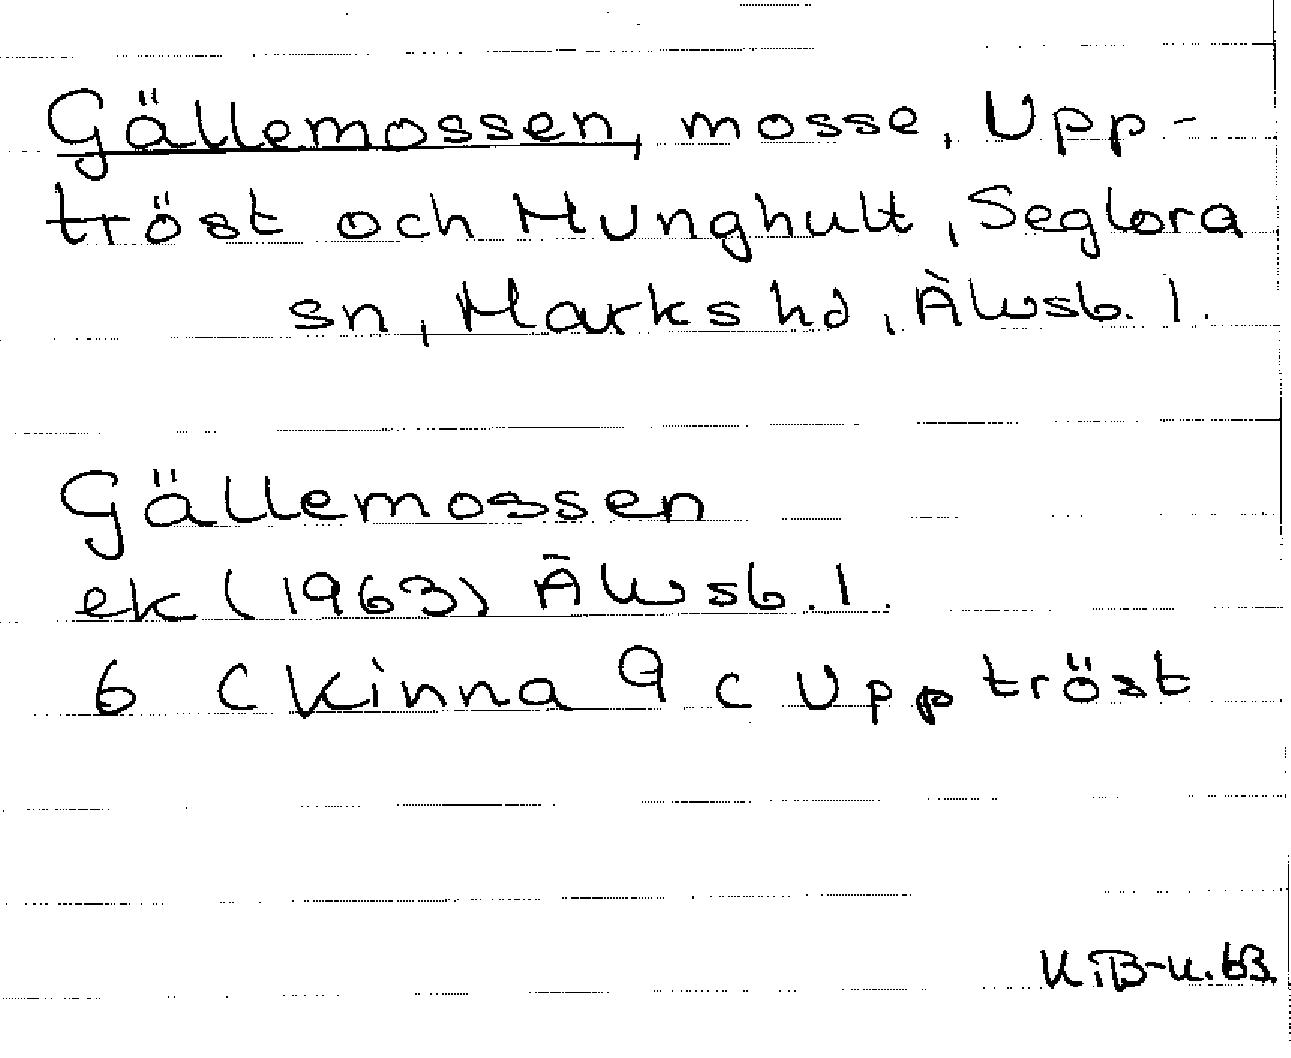 Gällemossen, mosse, Upp-
tröst och Hunghult, Seglora
sn, Marks hd, Älvsb. l.
Gällemossen
ek (1963) Älvsb. l.
6 C Kinna 9 c Upptröst